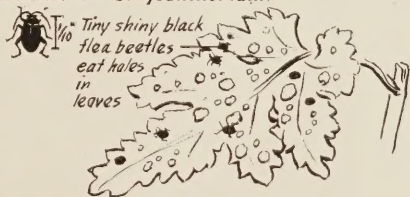 1/10" Tiny shiny black
flea beetles
eat holes
in
leaves